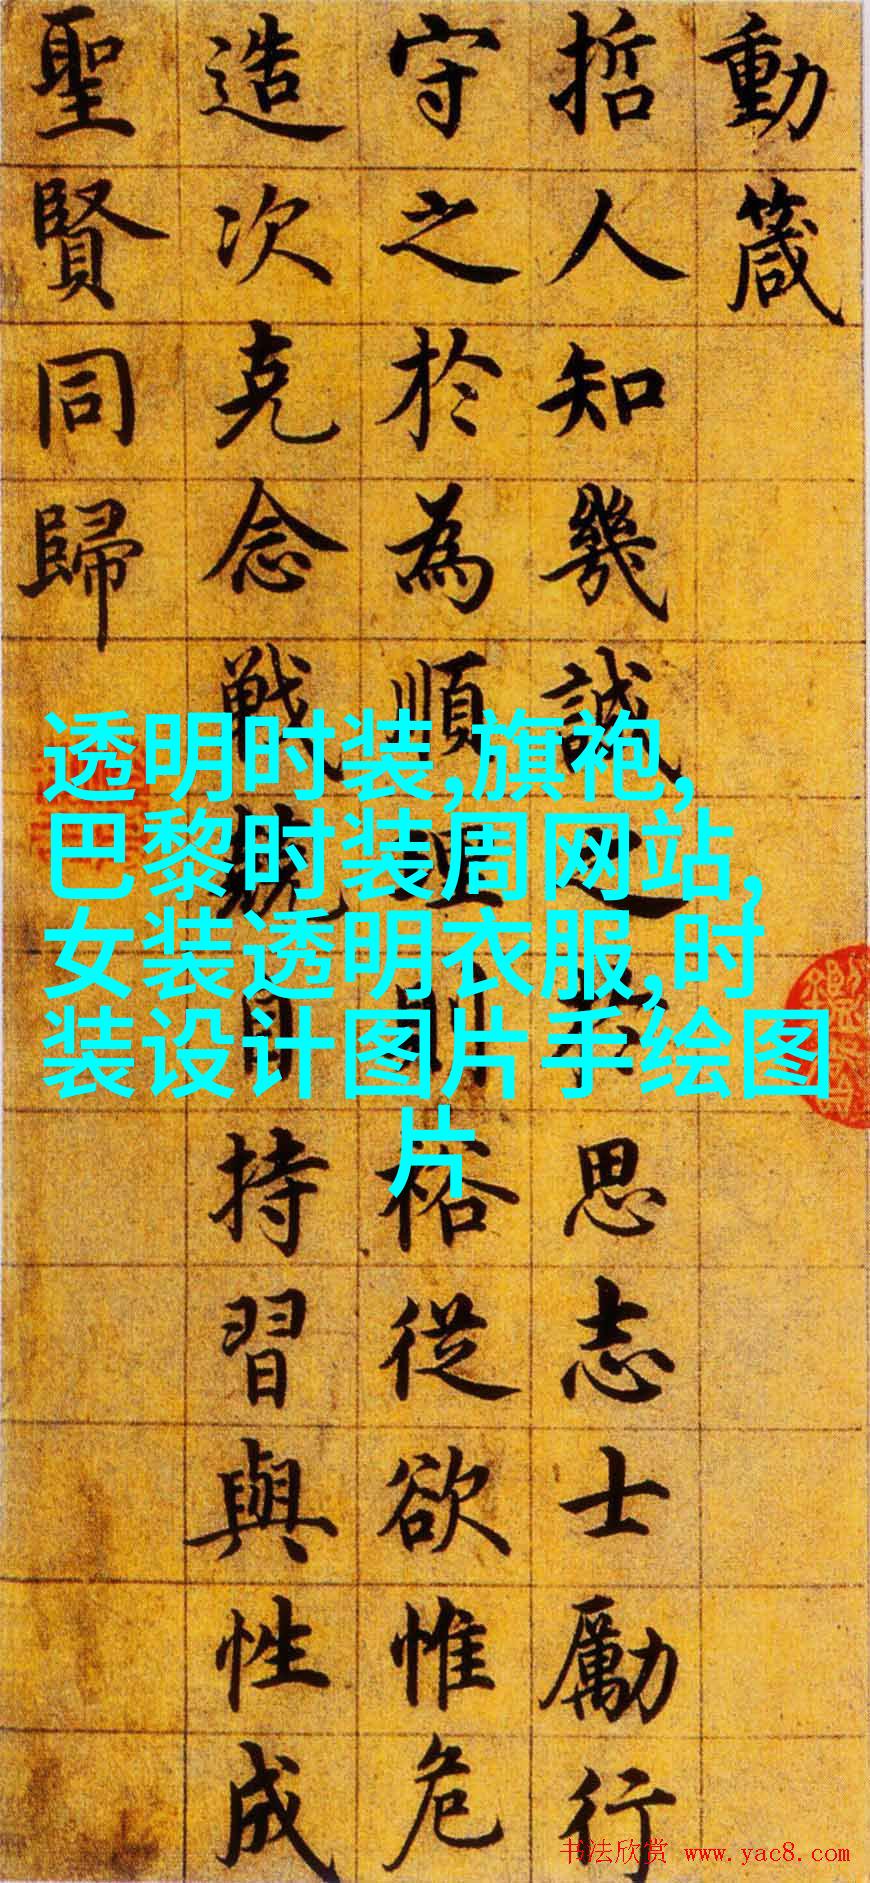 動箴
哲人知幾誠之思志士勵行
守之於為順理則裕從欲惟危
造次克念戰兢自持習與性成
聖賢同歸
透明时装,旗袍,
巴黎时装周网站,
女装透明衣服,时
装设计图片手绘图
片
书法欣赏 www.yac8.com